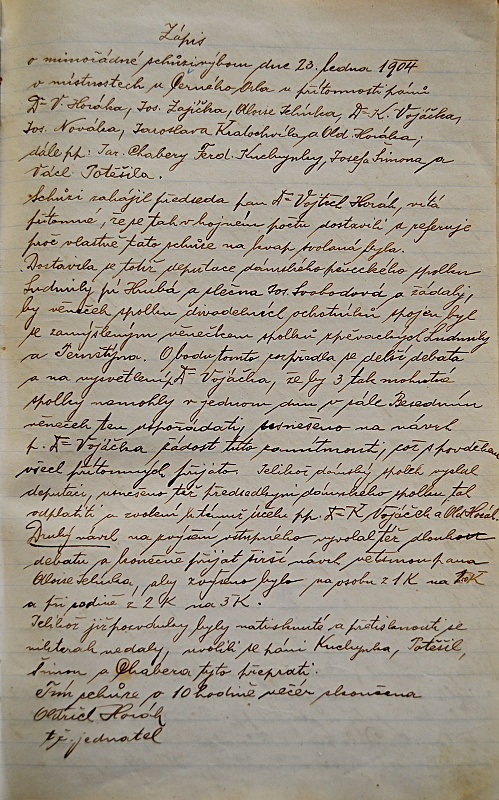 Zápis
o mimořádné schůzi výboru dne 23. ledna 1904
v místnostech u Černého Orla u přítomnosti pánů
Dr V. Horáka, Jos. Zajíčka, Aloise Jelínka, Dr K. Vojáčka,
Jos. Nováka, Jaroslava Kratochvíla, a Old. Horáka;
dále pp: Jar. Chabery Ferd. Kuchynky, Josefa Šimona, a
Václ. Potěšila.
Schůzi zahájil předseda pan Dr Vojtěch Horák, vítá
přítomné, že se tak v hojném počtu dostavili a referuje
proč vlastně tato schůze na kvap svolaná byla.
Dostavila se totiž deputace dámského pěveckého spolku
Ludmily pí Hrubá a slečna Jos. Svobodová a žádaly,
by věneček spolku divadelních ochotníků spojen byl
se zamýšleným věnečkem spolků zpěváckých Ludmily
a Pernštýna. O bodu tomto rozpředla se delší debata
a na vysvětlení Dr Vojáčka, že by 3 tak mohutné
spolky nemohly v jednom dnu v sále Besedním
věneček ten uspořádati, usneseno na návrh
p. Dr Vojáčka žádost tuto zamítnouti, což s povděkem
všech přítomných přijato. Jelikož dámský spolek vyslal
deputaci, usneseno též předsedkyni dámského spolku tak
odplatiti a zvoleni k témuž účelu pp. Dr K. Vojáček a Old. Horák.
Druhý návrh na zvýšení vstupného vyvolal též dlouhou
debatu a konečně přijat širší návrh většinou pana
Aloise Jelínka, aby zvýšeno bylo na osobu z 1 K na
a při rodině z 2 K na 3 K.
Jelikož již pozvánky byly natisknuté a přetisknouti se
nikterak nedaly, uvolili se páni Kuchynka, Potěšil,
Šimon a Chabera tyto přeprati.
Tím schůze o 10 hodině večer skončena
Oldřich Horák
t.č. jednatel